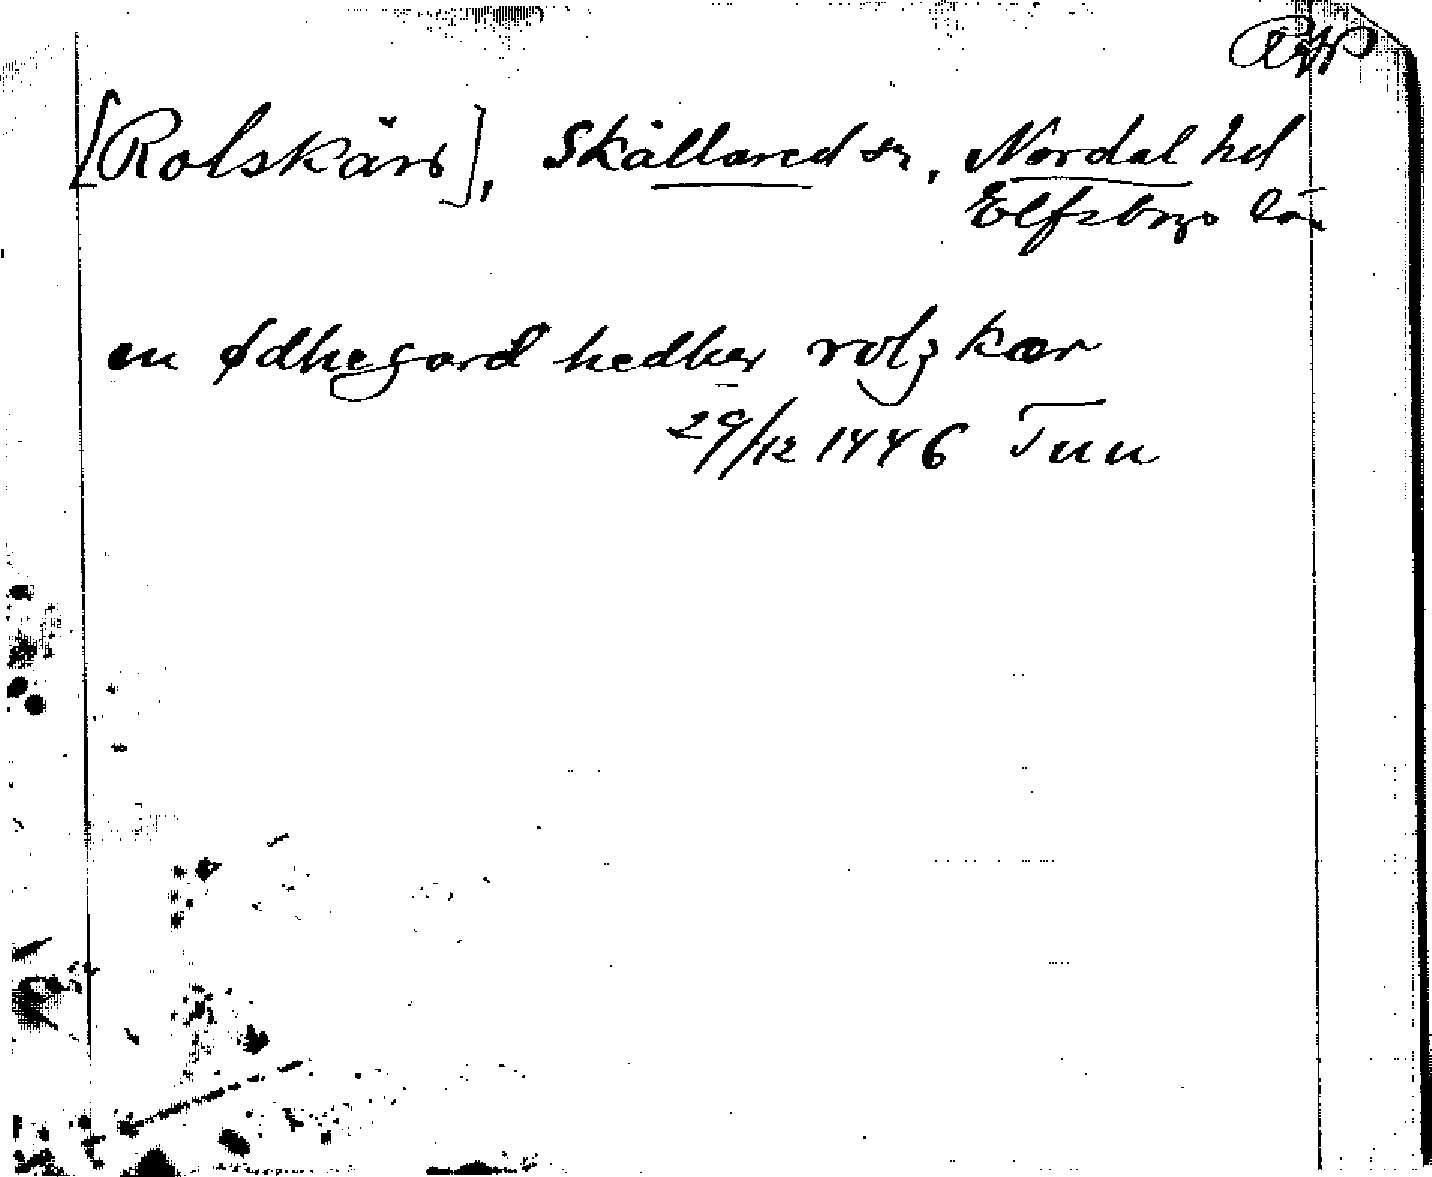 [Rolskärr], Skållared sn, Nordal hd
Elfsborgs län
en ødhegard hedher rolzkær
29/12 1446 Tun